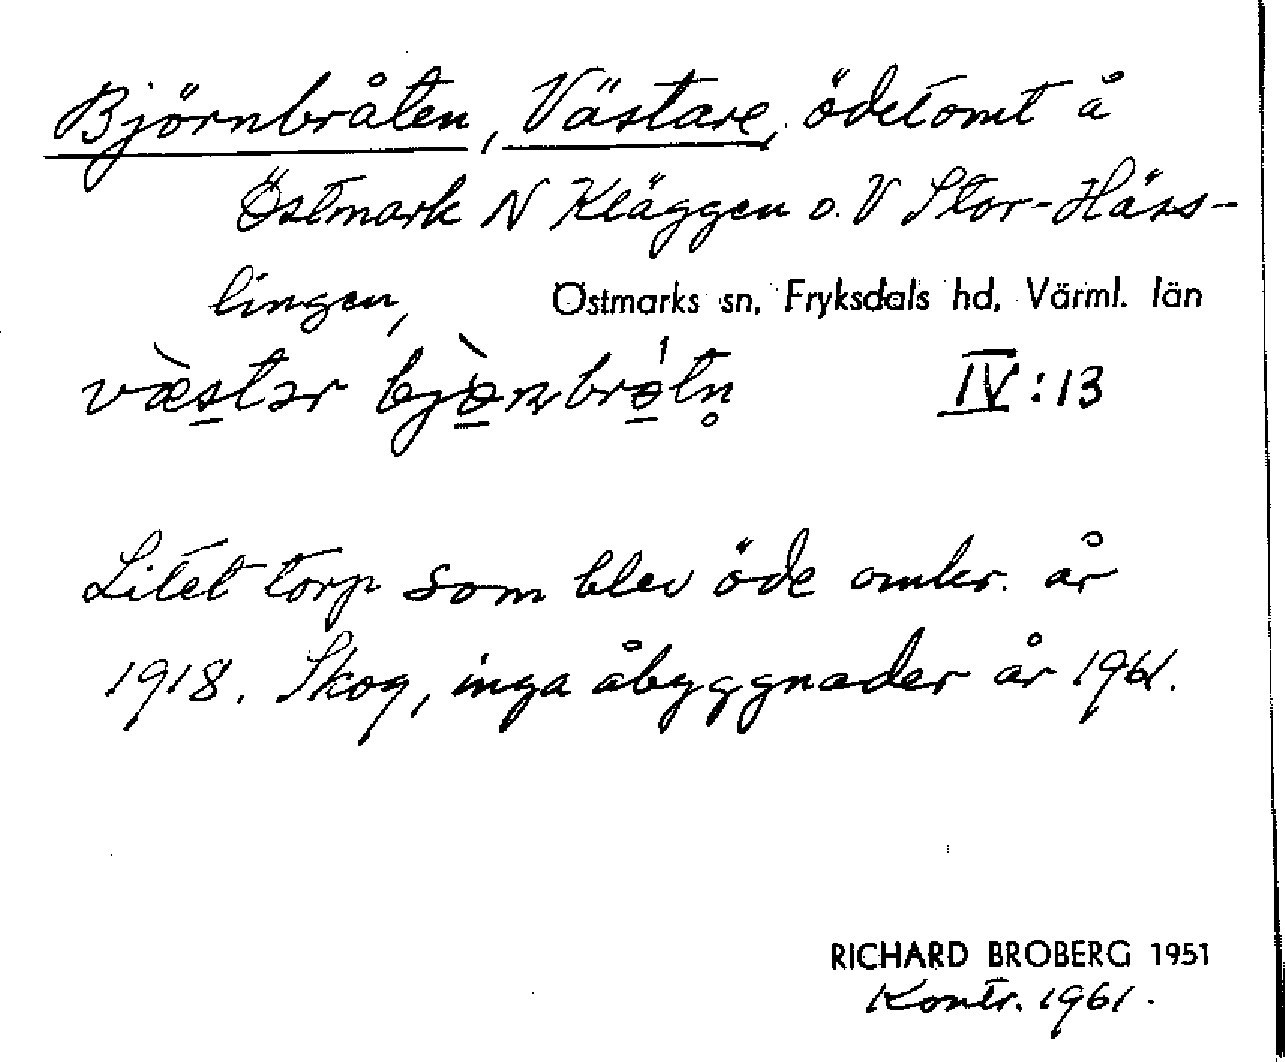 Björnbråten, Västare, ödetomt å
Östmark N Kläggen o. V Stor-Häss-
lingen, Östmarks sn, Fryksdals hd, Värml. län
væ̀stər bjö̀ṇbrǿtn̥ IV:13
Litet torp som blev öde omkr. år
1918. Skog, inga åbyggnader år 1961.
RICHARD BROBERG 1951
Kontr. 1961.